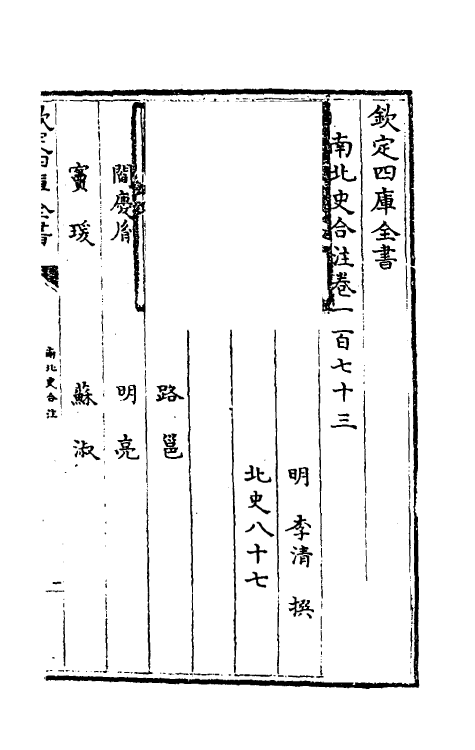 欽定四庫全書
南北史合注卷一百七十三
明 李清 撰
北史八十七
路邕
閻慶胤 明亮
竇瑗 蘇淑
欽定四庫全書
南北史合注
二